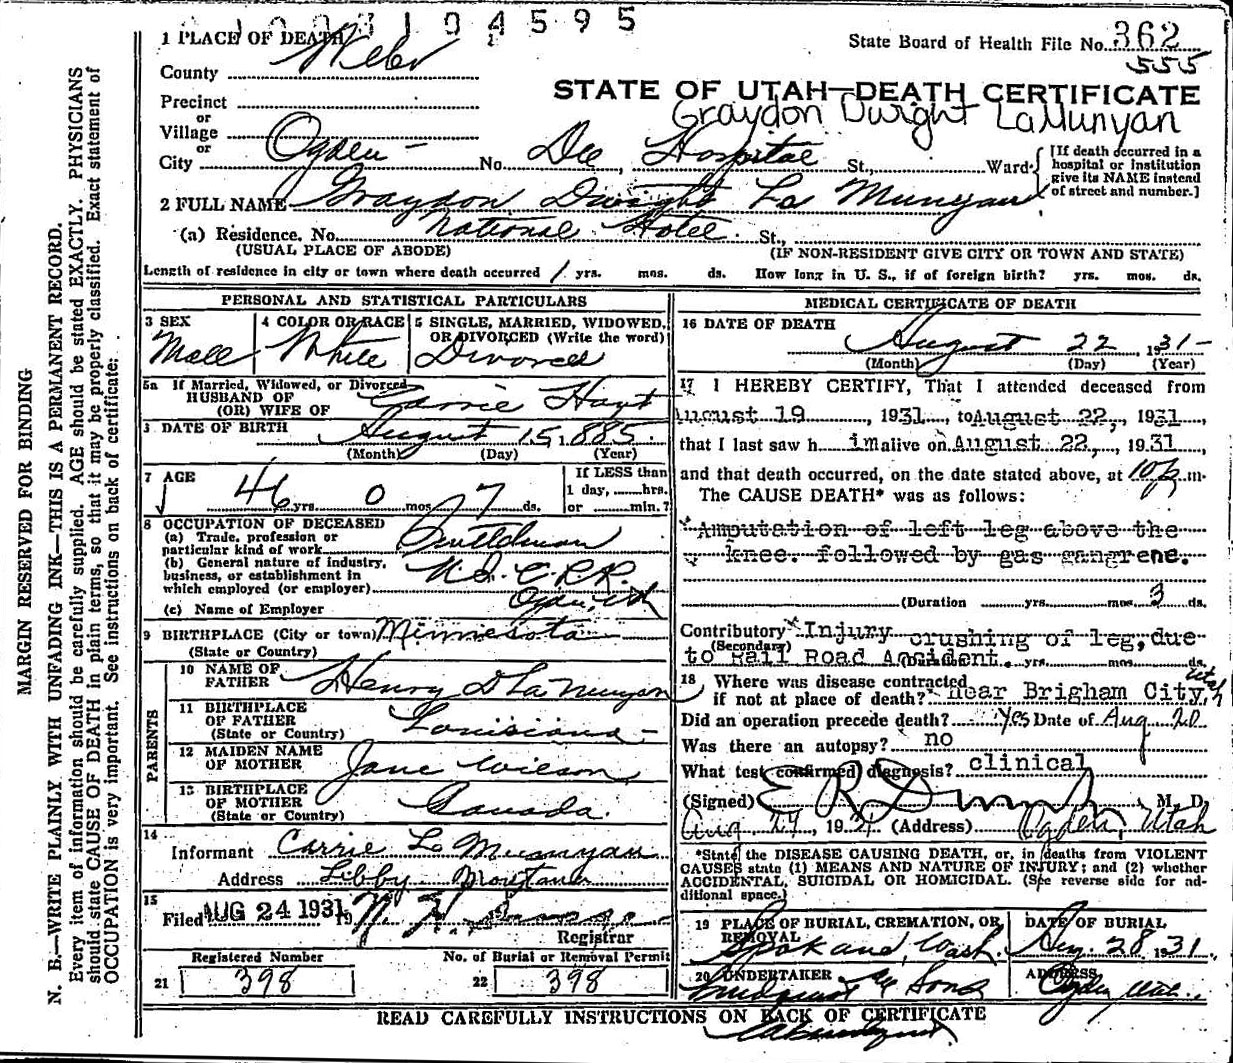 1003104595
1 PLACE OF DEATH
State Board of Health File No. 362
555
County Weber
STATE OF UTAH—DEATH CERTIFICATE
Precinct
or
Graydon Dwight LaMunyan
Village
or
City Ogden No. Dee Hospital St., Ward
[If death occurred in a hospital or institution give its NAME instead of street and number.]
2 FULL NAME Graydon Dwight La Munyan
(a) Residence. No. National Hotel St.,
(USUAL PLACE OF ABODE) (IF NON-RESIDENT GIVE CITY OR TOWN AND STATE)
Length of residence in city or town where death occurred 1 yrs. mos. ds. How long in U. S., if of foreign birth? yrs. mos. ds.
PERSONAL AND STATISTICAL PARTICULARS
3 SEX Male
4 COLOR OR RACE White
5 SINGLE, MARRIED, WIDOWED, OR DIVORCED (Write the word) Divorced
5a If Married, Widowed, or Divorced
HUSBAND OF
(OR) WIFE OF Carrie Hoyt
DATE OF BIRTH August 15, 1885.
(Month) (Day) (Year)
7 AGE 46 yrs. 0 mos. 7 ds.
If LESS than 1 day, hrs. or min.?
8 OCCUPATION OF DECEASED
(a) Trade, profession or particular kind of work Switchman
(b) General nature of industry, business, or establishment in which employed (or employer)
Ogden, Utah
(c) Name of Employer
9 BIRTHPLACE (City or town) Minnesota
(State or Country)
PARENTS
10 NAME OF FATHER Henry D La Munyan
11 BIRTHPLACE OF FATHER (State or Country) Louisiana
12 MAIDEN NAME OF MOTHER Jane Wilson
13 BIRTHPLACE OF MOTHER (State or Country) Canada.
14 Informant Carrie La Munyan
Address Libby Montana
15 Filed AUG 24 1931 19
Registrar
Registered Number
21 398
No. of Burial or Removal Permit
22 398
MEDICAL CERTIFICATE OF DEATH
16 DATE OF DEATH
August 22, 1931
(Month) (Day) (Year)
17 I HEREBY CERTIFY, That I attended deceased from
August 19, 1931, to August 22, 1931,
that I last saw h im alive on August 22, 1931
and that death occurred, on the date stated above, at 10 p m.
The CAUSE DEATH* was as follows:
Amputation of left leg above the
knee. followed by gas gangrene.
(Duration yrs. mos. 3 ds.
Contributory Injury crushing of leg, due
(Secondary)
to Rail Road Accident. yrs. mos. ds.
18 Where was disease contracted
if not at place of death? near Brigham City, Utah
Did an operation precede death? Yes Date of Aug 20
Was there an autopsy? no
What test confirmed diagnosis? clinical
(Signed) M. D.
Aug. 24, 1931 (Address) Ogden, Utah
*State the DISEASE CAUSING DEATH, or, in deaths from VIOLENT
CAUSES state (1) MEANS AND NATURE OF INJURY; and (2) whether
ACCIDENTAL, SUICIDAL OR HOMICIDAL. (See reverse side for additional space.)
19 PLACE OF BURIAL, CREMATION, OR REMOVAL Spokane, Wash.
DATE OF BURIAL Aug. 28 1931.
20 UNDERTAKER & Sons
ADDRESS Ogden Utah.
READ CAREFULLY INSTRUCTIONS ON BACK OF CERTIFICATE
MARGIN RESERVED FOR BINDING
N. B.—WRITE PLAINLY WITH UNFADING INK—THIS IS A PERMANENT RECORD.
Every item of information should be carefully supplied. AGE should be stated EXACTLY. PHYSICIANS
should state CAUSE OF DEATH in plain terms, so that it may be properly classified. Exact statement of
OCCUPATION is very important. See instructions on back of certificate.